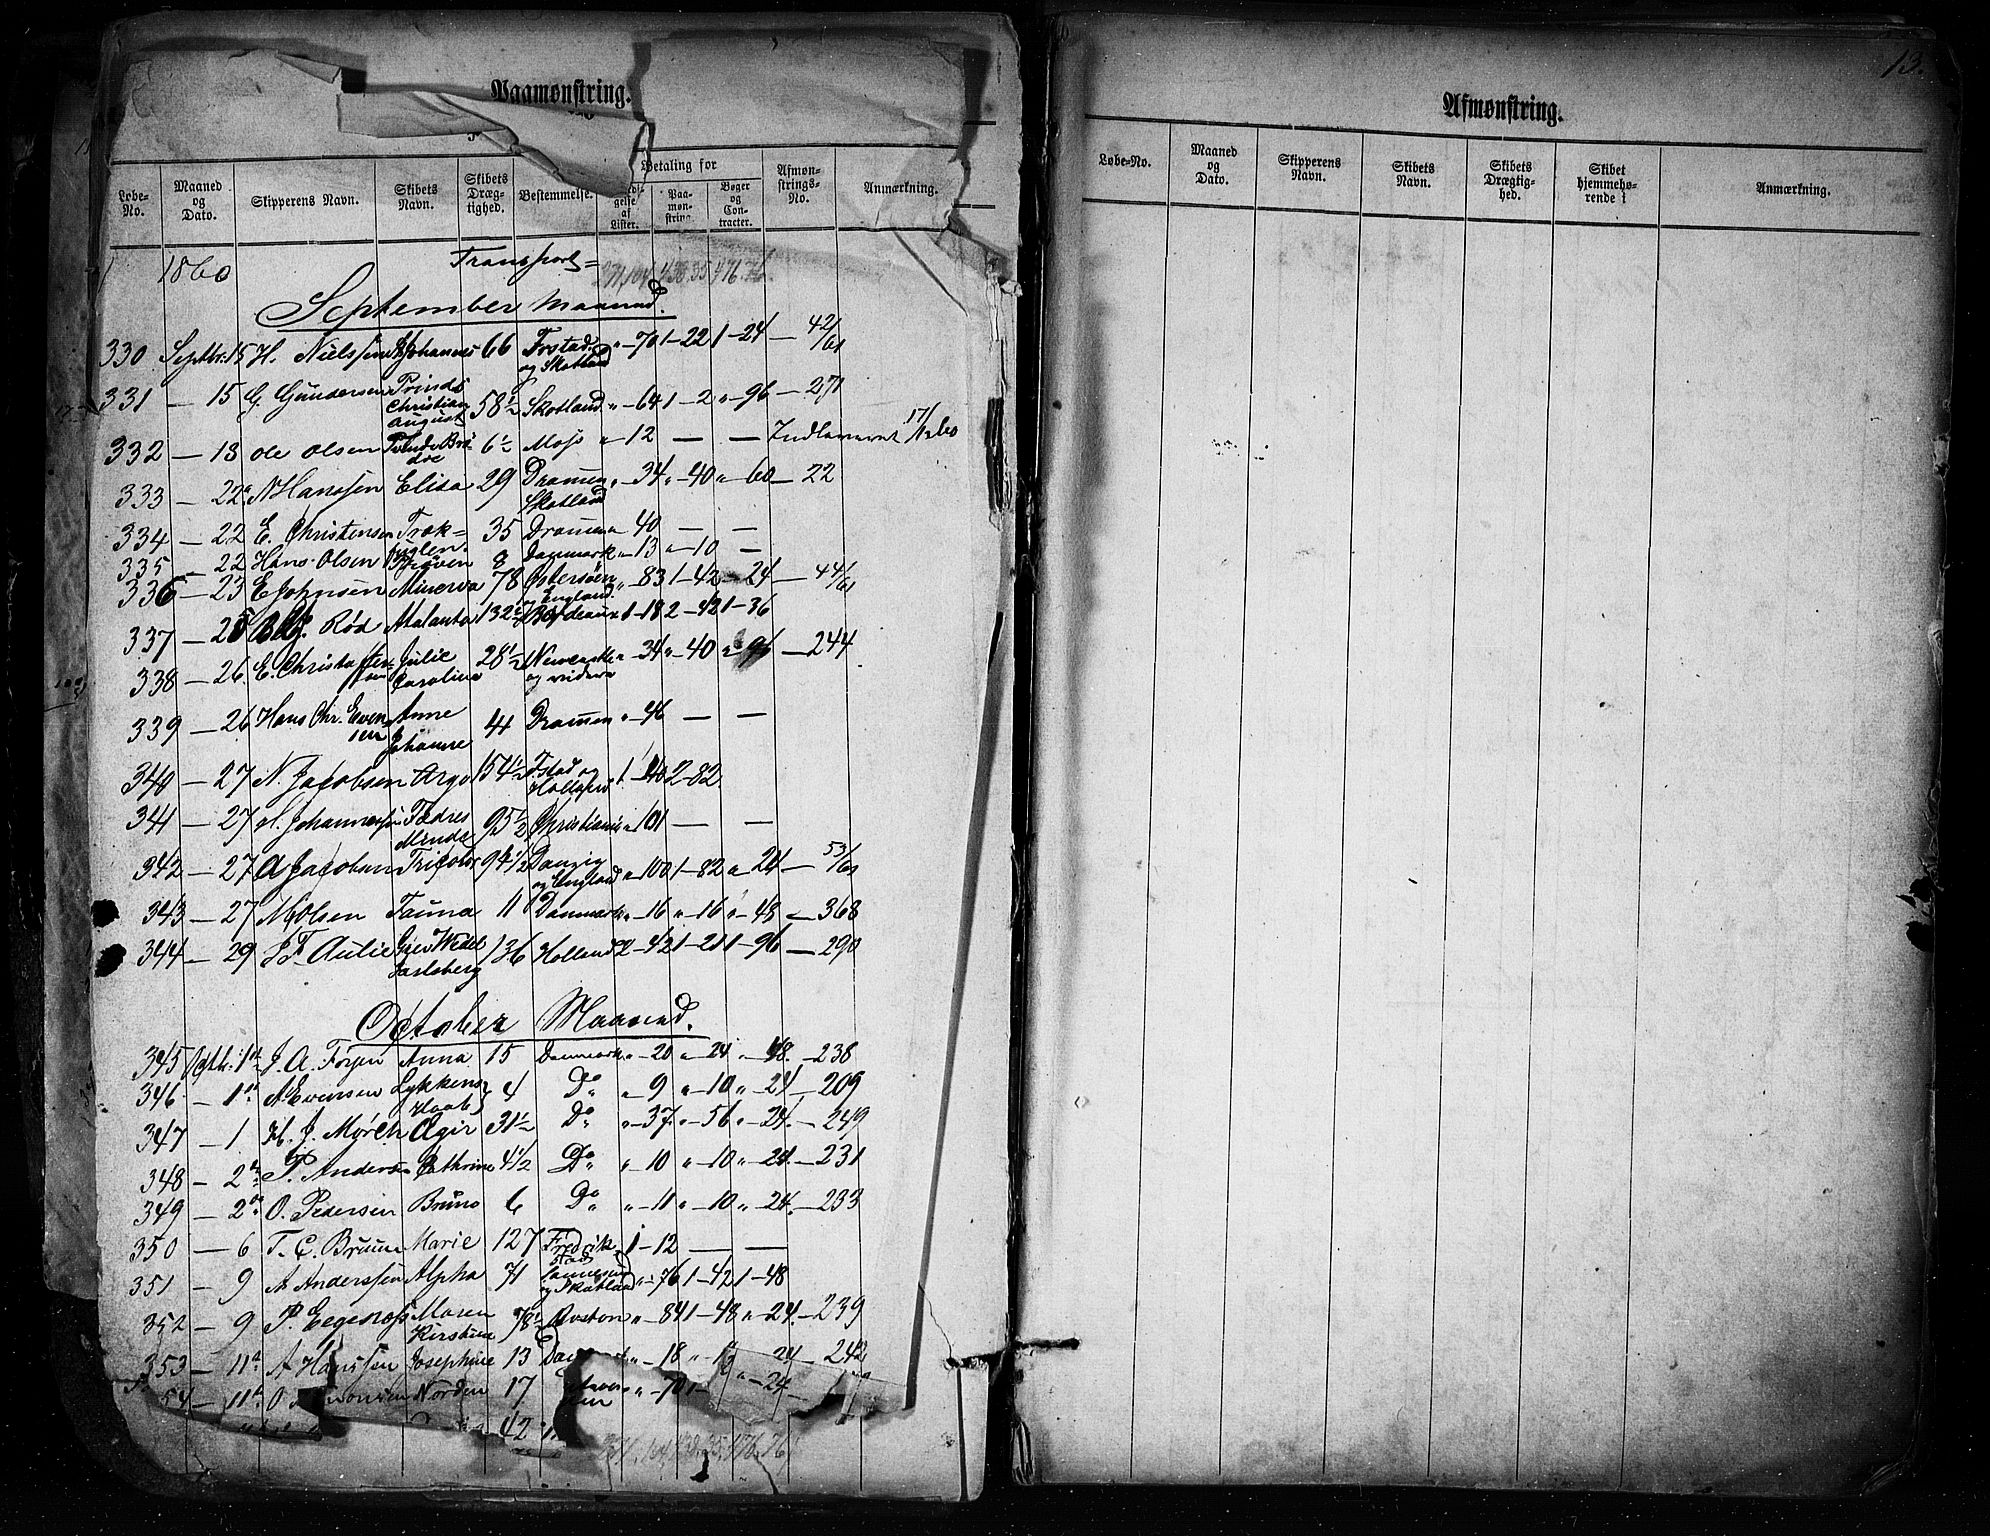 Paamønstring.
Løbe-No. Maaned og Dato. Skipperens Navn. Skibets Navn. Skibets Dræg-tighed. Bestemmelse. Betaling for gelse af Lister. Paa-møn-string. Bøger og Con-tracter. Afmøn-strings-No. Anmærkning.
1860 Transport =
September Maaned.
330 Septbr. 15 H. Nielssen Johannes 66 Frstad og Skotland " - 70 1 - 22 1 - 24 - 42/61
331 - 15 G. Gundersen Prinds Christian August 58½ Skotland " - 64 1 - 2 " - 96 - 271
332 - 18 Ole Olsen Brødre 6½ Moss " - 12 - - Indleveret 17/12 60
333 - 22 N Hanssen Elisa 29 Dramen Skotland " - 34 " - 40 " - 60 - 22
334 - 22 E. Christensen Træk= fuglen 35 Dramen " - 40 - -
335 - 22 Hans Olsen 8 Danmark " - 13 " - 10 -
336 - 23 E Johnsen Minerva 78 Østersøen og England " - 83 1 - 42 - 24 - 44/61
337 - 25 Rød Atalanta 132½ Bordeaux 1 - 18 2 - 42 1 - 36
338 - 26 E. Christoffersen Julie Carolina 28½ Newcastle og videre " - 34 " - 40 " - 96 - 244
339 - 26 Hans Chr. Evensen Anne Johanne 44 Dramen " - 46 - -
340 - 27 N. Jacobsen Argo 154½ Fstad og Holland 1 - 40 2 - 82
341 - 27 Johannessen Fædres Minde 95½ Christiania " - 101 - -
342 - 27 A Jacobsen Tricolor 94½ Danzig og England " - 100 1 - 82 " - 24 - 53/61
343 - 27 M Olsen Fauna 11 Danmark " - 16 " - 16 " - 48 - 368
344 - 29 Aulie Grev Wedel Jarlsberg 136 Holland 2 - 42 1 - 21 1 - 96 - 290
October Maaned.
345 Octbr. 1 J. A. Anna 15 Danmark " - 20 " - 24 " - 48 - 238
346 - 1 A Evensen Lykkens Haab 4 Do " - 9 " - 10 " - 24 - 209
347 - 1 H. J. Mørch Ægir 31½ Do " - 37 " - 56 " - 24 - 249
348 - 2 P. Andersen Cathrine 4½ Do " - 10 " - 10 " - 24 - 231
349 - 2 O. Pedersen Bruno 6 Do " - 11 " - 10 " - 24 - 233
350 - 6 T. C. Bruun Marie 127 Fredrikstad 1 - 12 - -
351 - 9 A Anderssen Alpha 71 og Skotland " - 76 1 - 42 1 - 48
352 - 9 P. Eegenæss Maren Kirstine 78½ " - 84 1 - 48 " - 24 - 239
353 - 11 A Hanssen Josephine 13 " - 18 " - - 24 - 242
54 - 11 O Norden 17 " - 70 1 - " - 24
42
13.
Afmønstring.
Løbe-No. Maaned og Dato. Skipperens Navn. Skibets Navn. Skibets Drægtig-hed. Skibet hjemmehø-rende i Anmærkning.